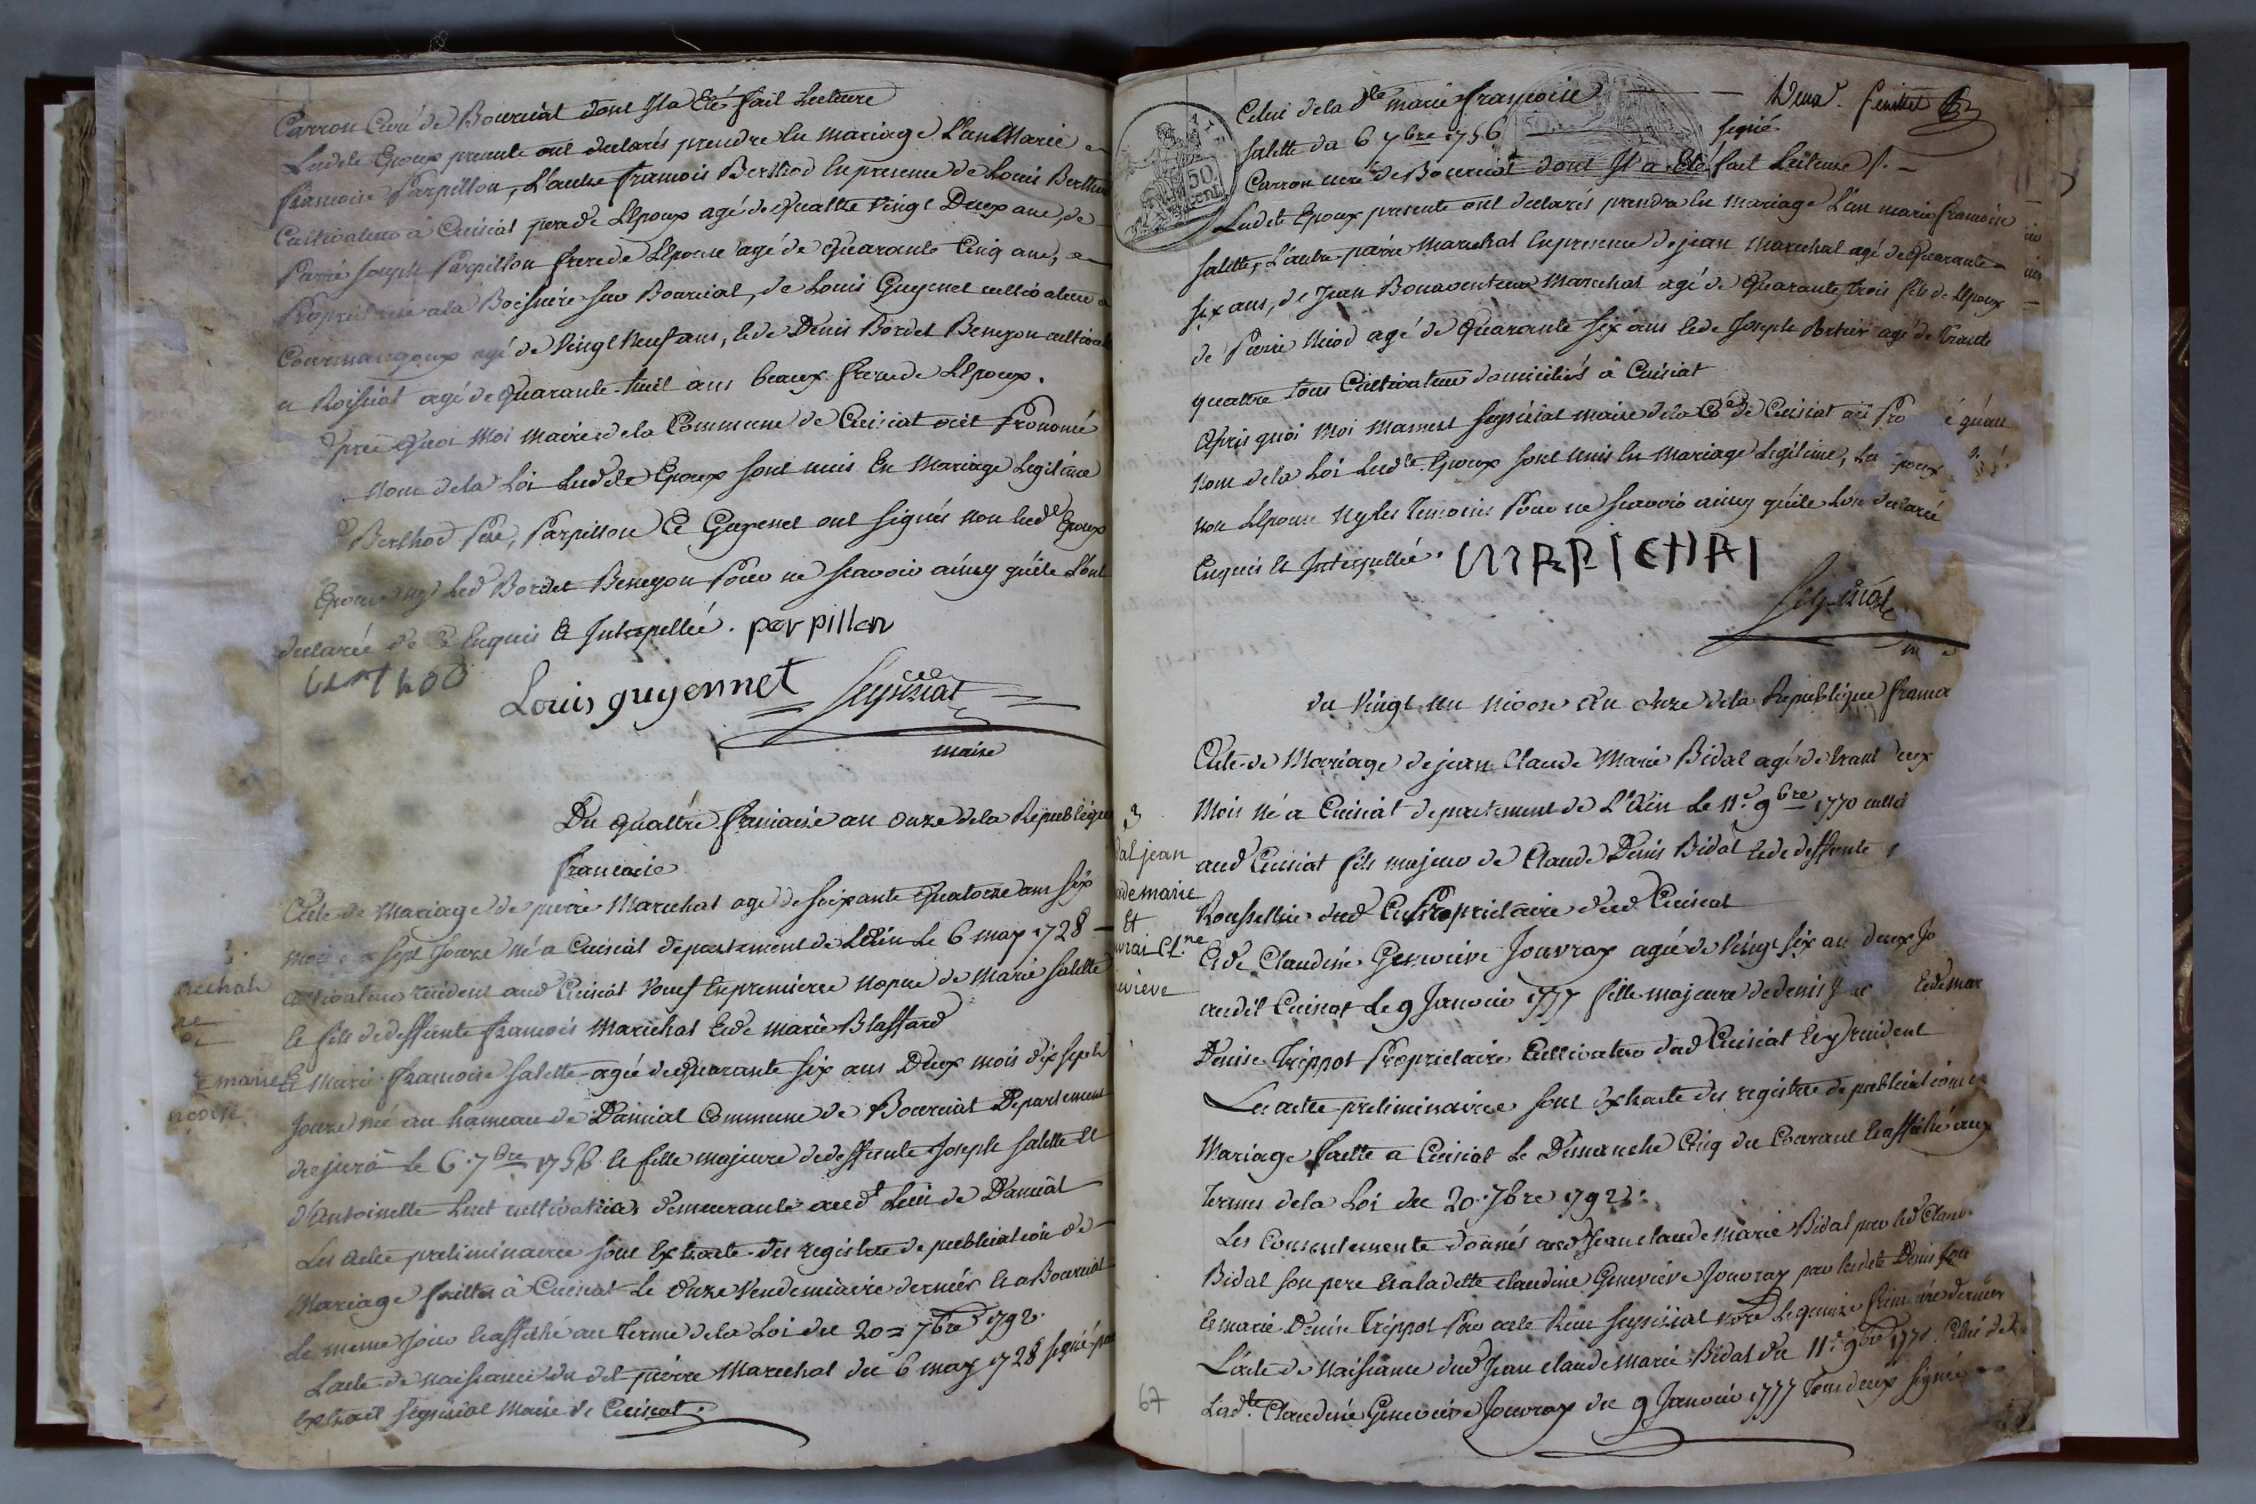 Carron Curé de Bourciat dont Il a Eté fait Lecture
Lesdits Epoux presents ont declarés prendre En mariage L'un Marie
francoise Parpillon, L'autre francois Berthod En presence de Louis Berthod
Cultivateur à Cuisiat pere de L'Epoux agé de Quattre Vingt Deux ans, de
Pierre Joseph Parpillon frere de L'Epouse agé de Quarante Cinq ans,
Proprietaire a la Boissiere sur Bourciat, de Louis Guyenet cultivateur a
Courmangoux agé de Vingt Neuf ans, et de Denis Bordet Benegon cultivat
a Roissiat agé de Quarante huit ans beaux freres de L'Epoux.
Aprés Quoi Moi Maire de la Commune de Cuisiat ait Prononcé
Nom de la Loi Lesdits Epoux sont unis En Mariage Legitime
Berthod Pere, Parpillon Et Guyenet ont signés non lesd Epoux
Epouse ny led Bordet Benegon Pour ne scavoir ainsy qu'ils L'ont
declaré de Ce Enquis Et Interpellé. parpillon
berthod
Louis guyennet Seyssiat
maire
Du quattre frimaire an Onze de la Republique
francaise
Acte de Mariage de pierre Marechal agé de soixante Quatorze ans six
mois sept Jours né a Cuisiat departement de L'Ain Le 6 may 1728
Cultivateur resident aud Cuisiat Veuf En premiere Nopce de Marie Salette
Et fils de deffunts francois Marechal Et de marie Blaffard
Et Marie francoise Salette agée de Quarante six ans Deux mois dix sept
Jours née au hameau de Damiat Commune de Bourciat Departement
du jura Le 6 7bre 1756 Et fille majeure de deffunts Joseph Salette Et
d'Antoinette Luet cultivatrice demeurante aud Lieu de Damiat
Les actes preliminaires sont Extraits des registres de publication de
Mariage faittes à Cuisiat Le Onze Vendemiaire dernier Et a Bourciat
Le meme Jour Et affiché au Terme de la Loi du 20 7bre 1792
L'acte de naissance du dit pierre Marechal du 6 may 1728 signé par
Extrait Seyssiat Maire de Cuisiat.
rechal
re
marie
ncoise
Deux. feuillet
Celui de la dlle marie francoise
Salette du 6 7bre 1756 signé
Carron curé de Bourciat dont Il a Eté fait Lecture
Lesdits Epoux presents ont declarés prendre En mariage L'un marie francoise
Salette, L'autre pierre Marechal En presence de jean Marechal agé de Quarante
six ans, de Jean Bonaventure Marechal agé de Quarante trois fils de L'Epoux
de Pierre Niod agé de Quarante six ans Et de Joseph agé de Trante
quattre Tous Cultivateurs domiciliés à Cuisiat
Apris quoi Moi Seyssiat maire de la Cne de Cuisiat ait Pro é qu'au
Nom de la Loi Lesdts Epoux sont Unis En Mariage Legitime, Les poux
Non L'Epouse Ny les Temoins Pour ne Scavoir ainsy qu'ils L'on declaré
Enquis Et Interpellé. MARICHAI
Seyssiat
m e
du Vingt un Nivose An Onze de la Republique franca
Acte de Mariage de jean Claude Marie Bidal agé de trant deux
Mois Né a Cuisiat departement de L'Ain Le 11e 9bre 1770 culti
aud Cuisiat fils majeur de Claude Denis Bidal Et de deffunte
Rousselle Proprietaire dud Cuisiat
Et de Claudine Genevieve Jouvray agée de Vingt six an deux Jo
audit Cuisiat Le 9 Janvier 1777 fille majeure de denis J Et de mar
Denise Trippot Proprietaire Cultivateur dud Cuisiat Et y resident
Les actes preliminaires sont Extraits des registres de publications
Mariage faitte a Cuisiat Le Dimanche Cinq du Courant Et affiché aux
Termes de la Loi du 20 7bre 1792.
Les Consentements donnés aud Jean claude Marie Bidal par led Claude
Bidal son pere Et a ladette claudine Genevieve Jouvray par lesdits Denis son
Et marie Denise Trippot Par acte Reçu Seyssiat Nore Le quinze frimaire dernier
L'acte de Naissance dud Jean claude Marie Bidal du 11e 9bre 1770 Celui de la
Ladte Claudine Genevieve Jouvray du 9 Janvier 1777 Tous deux signés
3
dal jean
ude marie
Et
uvrai Cl.ne
evieve
50
CENT.
67